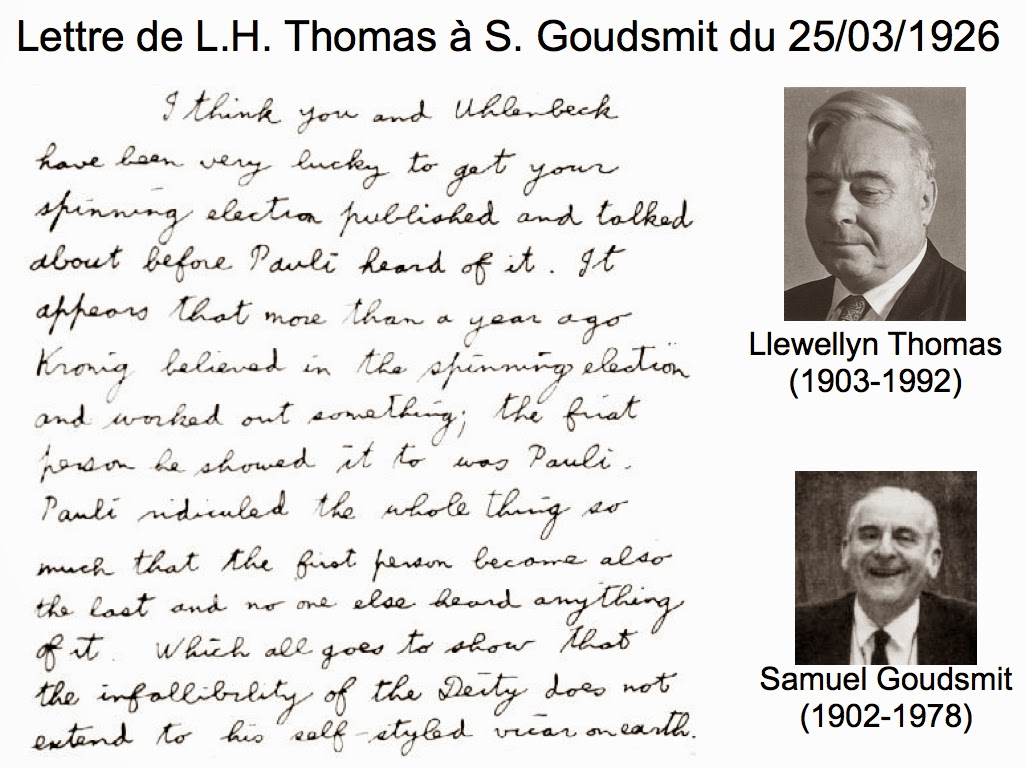 Lettre de L.H. Thomas à S. Goudsmit du 25/03/1926
I think you and Uhlenbeck
have been very lucky to get your
spinning electron published and talked
about before Pauli heard of it. It
appears that more than a year ago
Kronig believed in the spinning electron
and worked out something; the first
person he showed it to was Pauli.
Pauli ridiculed the whole thing so
much that the first person became also
the last and no one else heard anything
of it. Which all goes to show that
the infallibility of the Deity does not
extend to his self-styled vicar on earth.
Llewellyn Thomas
(1903-1992)
Samuel Goudsmit
(1902-1978)